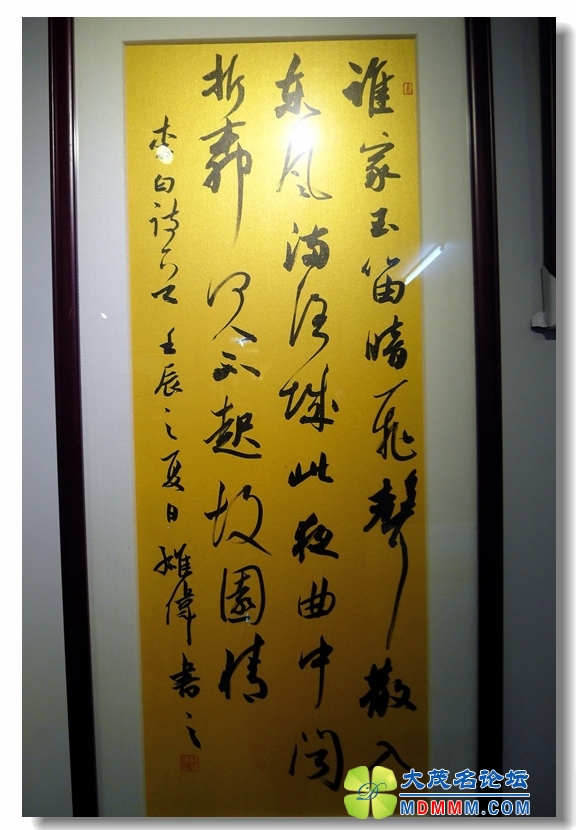 谁家玉笛暗飛聲散入
东风满洛城此夜曲中闻
折柳何人不起故園情
李白诗一首 壬辰之夏日 雄偉书之
大茂名论坛
MDMMM.COM